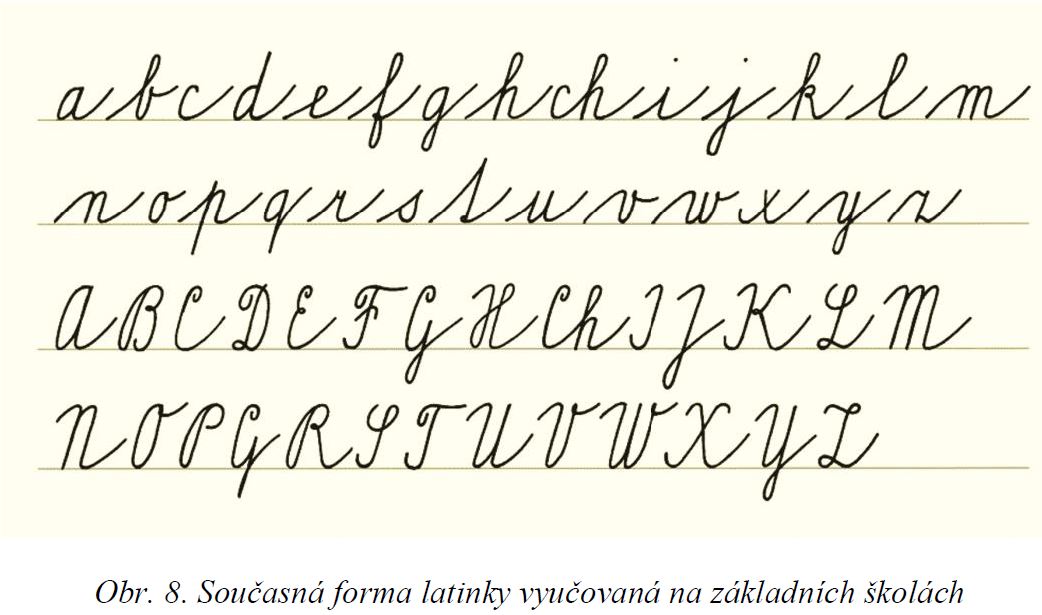 a b c d e f g h ch i j k l m
n o p q r s t u v w x y z
A B C D E F G H Ch I J K L M
N O P Q R S T U V W X Y Z
Obr. 8. Současná forma latinky vyučovaná na základních školách